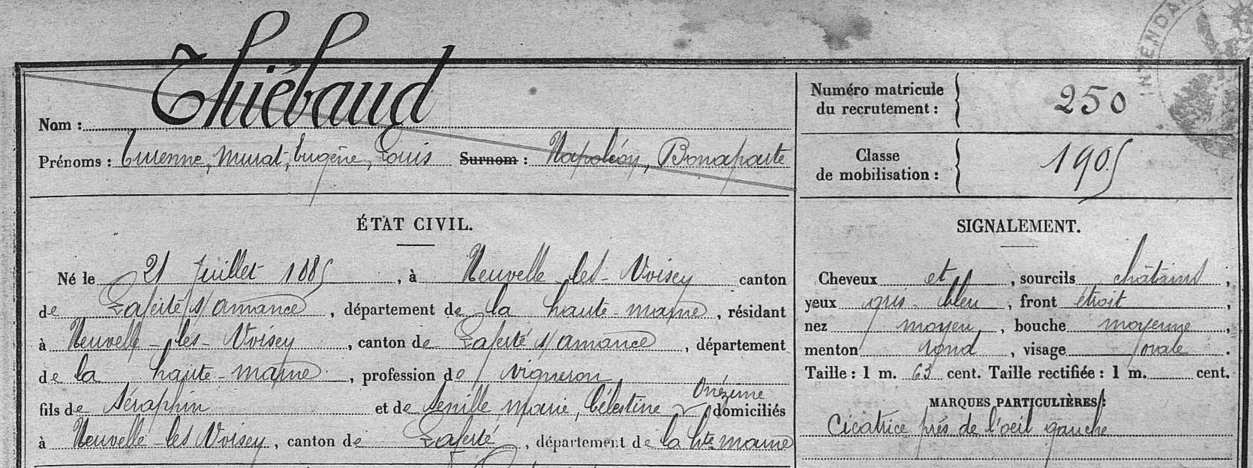 INTENDAN
Thiébaud
Nom :
Prénoms : Turenne, Murat, Eugène, Louis Surnom : Napoléon, Bonaparte
Numéro matricule
du recrutement : 250
Classe
de mobilisation : 1905
ÉTAT CIVIL.
Né le 21 Juillet 1885, à Neuvelle-les-Voisey canton
de Laferté s/amance, département de la haute-marne, résidant
à Neuvelle-les-Voisey, canton de Laferté s/amance, département
de la haute-marne, profession de vigneron
fils de Séraphin et de Senille Marie, Célestine Onézime domiciliés
à Neuvelle-les Voisey, canton de Laferté, département de la hte marne
SIGNALEMENT.
Cheveux et, sourcils châtains,
yeux gris-bleu, front étroit
nez moyen, bouche moyenne
menton rond, visage ovale.
Taille : 1 m. 63 cent. Taille rectifiée : 1 m. cent.
MARQUES PARTICULIÈRES :
Cicatrice près de l'oeil gauche